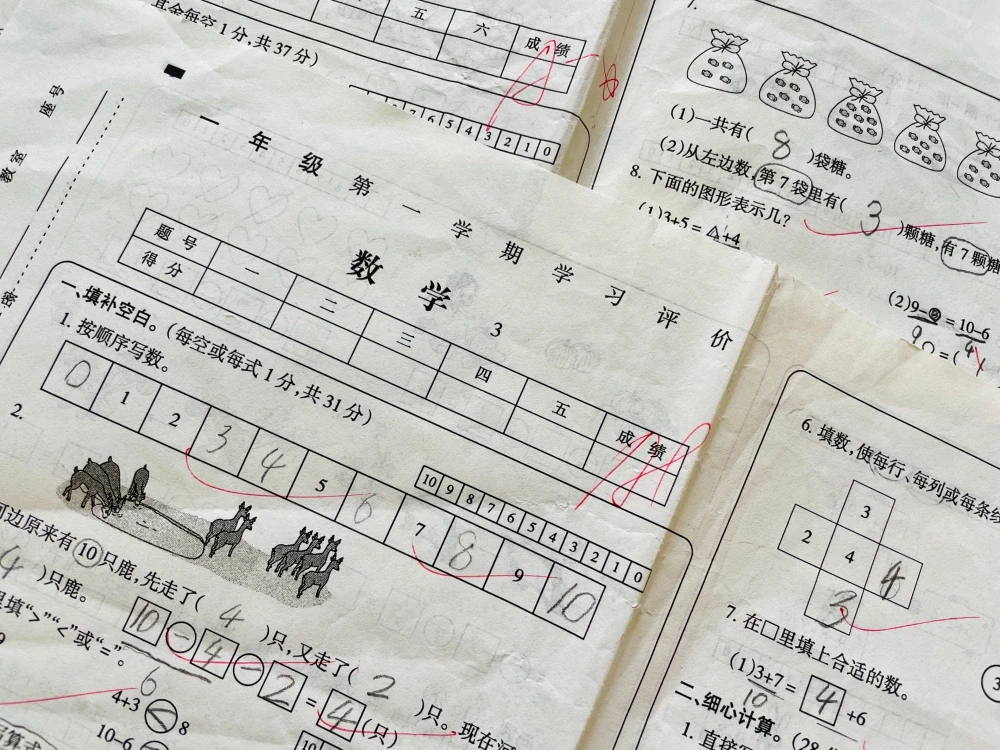 其余每空1分,共37分)
五 六 成绩
6 5 4 3 2 1 0
座号
教室
密
一年级第一学期学习评价
数学 3
题号 一 二 三 四 五 成绩
得分
一、填补空白。(每空或每式1分,共31分)
1. 按顺序写数。
0 1 2 3 4 5 6 7 8 9 10
10 9 8 7 6 5 4 3 2 1 0
2.
河边原来有⑩只鹿,先走了( 4 )只,又走了( 2 )只。现在河
4 )只鹿。
10 - 4 - 2 = 4 (只)
里填“>”“<”或“=”。
6
4+3 < 8
10-6
(1)一共有( 8 )袋糖。
(2)从左边数,第7袋里有( 3 )颗糖,有7颗糖
8. 下面的图形表示几?
(1)3+5 = △+4
(2)9- = 10-6
9 4
6. 填数,使每行、每列或每条
3
2 4 4
3
7. 在□里填上合适的数。
(1)3+7 = 4 +6
10
二、细心计算。(28
1. 直接写